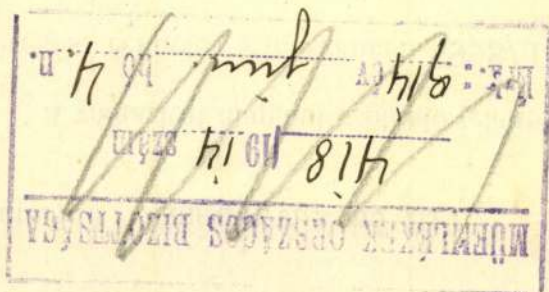 MŰEMLÉKEK ORSZÁGOS BIZOTTSÁGA
418 19 14 szám
Érk.: 914 év jun. hó 4. n.